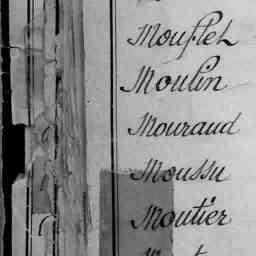 Mouflet
Moulin
Mouraud
Moussu
Moutier